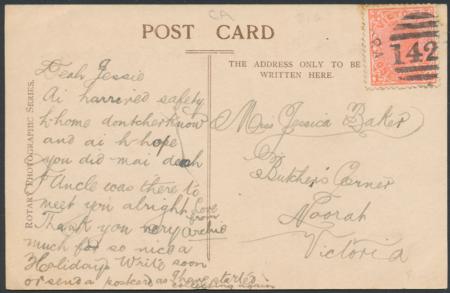 CA
POST CARD
THE ADDRESS ONLY TO BE
WRITTEN HERE.
142
ROTARY PHOTOGRAPHIC SERIES.
Deah Jessie
Ai harrived safety
h-home dontcherknow
and ai h-hope
you did mai deah
Uncle was there to
meet you alright
Thank you very
much for so nice a
Holiday Write soon
or send a postcard as I have started
collecting again
love
from
Archie
Miss Jessica Baker
Butchers Corner
Noorat
Victoria